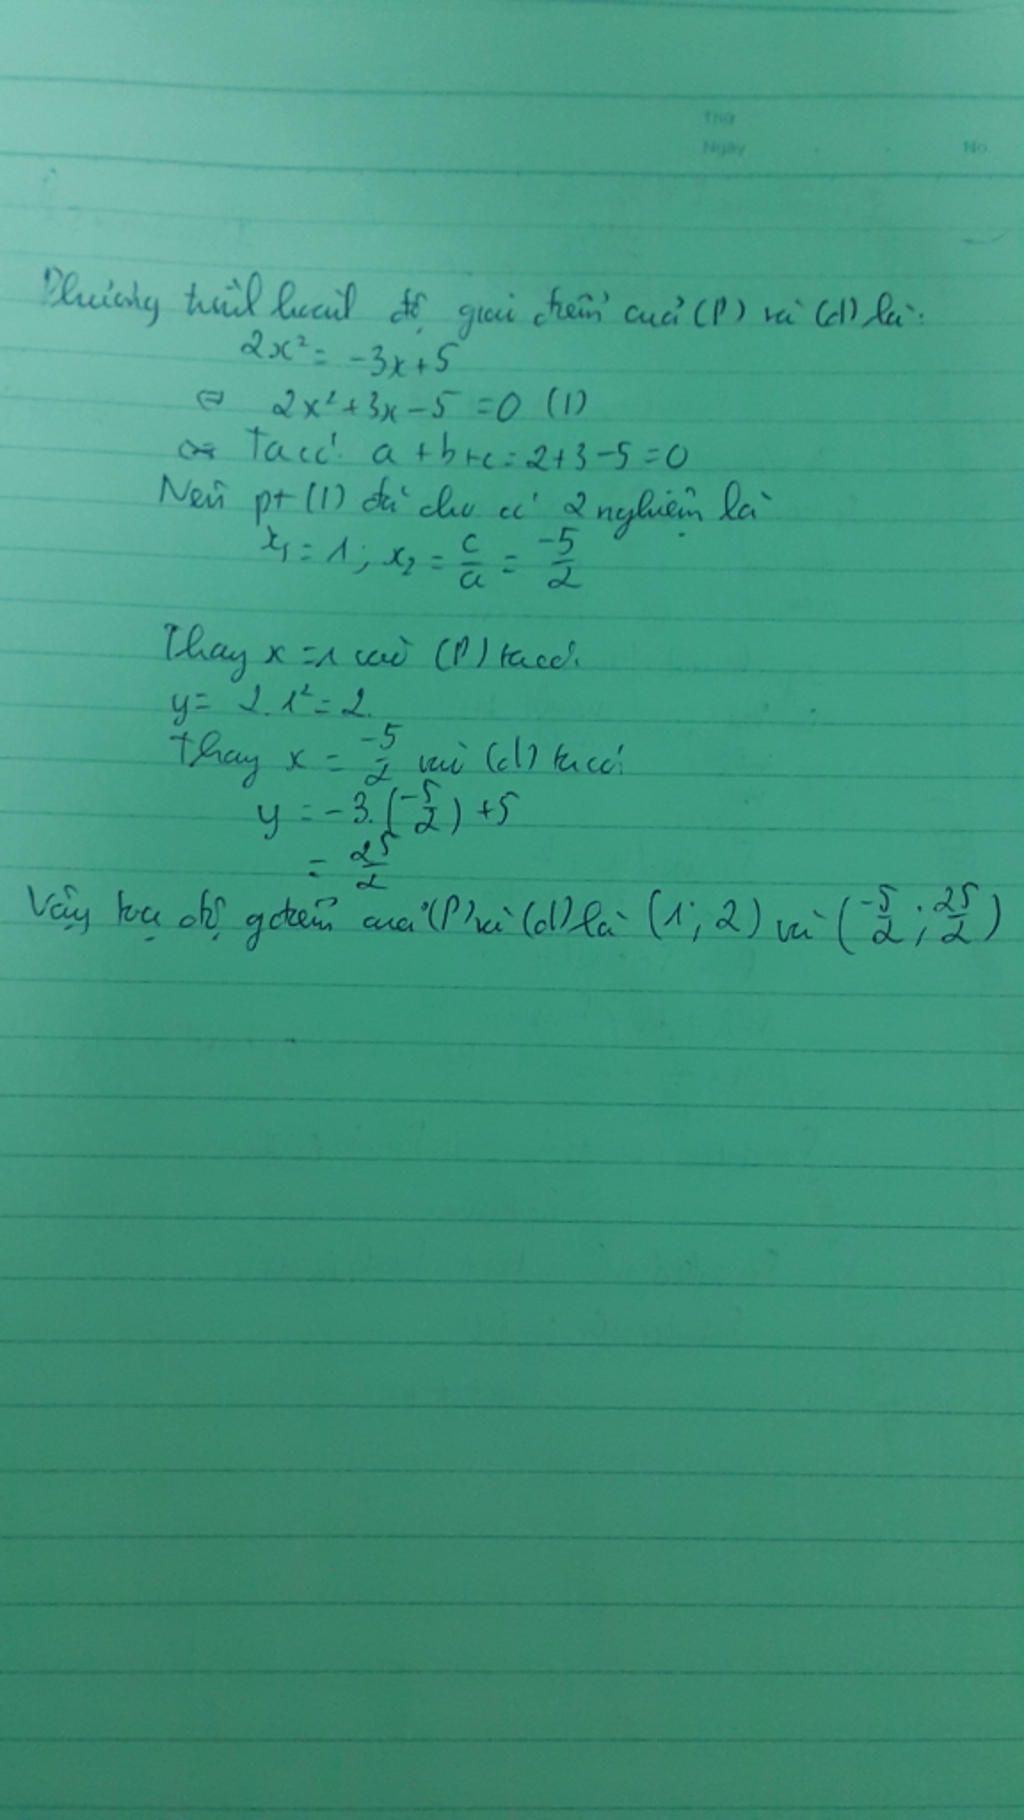 Thứ
Ngày No.
Phương trình hoành độ giao điểm của (P) và (d) là:
2x² = -3x+5
⇔ 2x²+3x-5=0 (1)
Ta có: a+b+c=2+3-5=0
Nên pt (1) đã cho có 2 nghiệm là
x₁=1; x₂ = c/a = -5/2
Thay x=1 vào (P) ta có:
y= 2.1²=2.
Thay x = -5/2 vào (d) ta có:
y = -3.(-5/2)+5
= 25/2
Vậy toạ độ gđiểm của (P) và (d) là (1; 2) và (-5/2; 25/2)